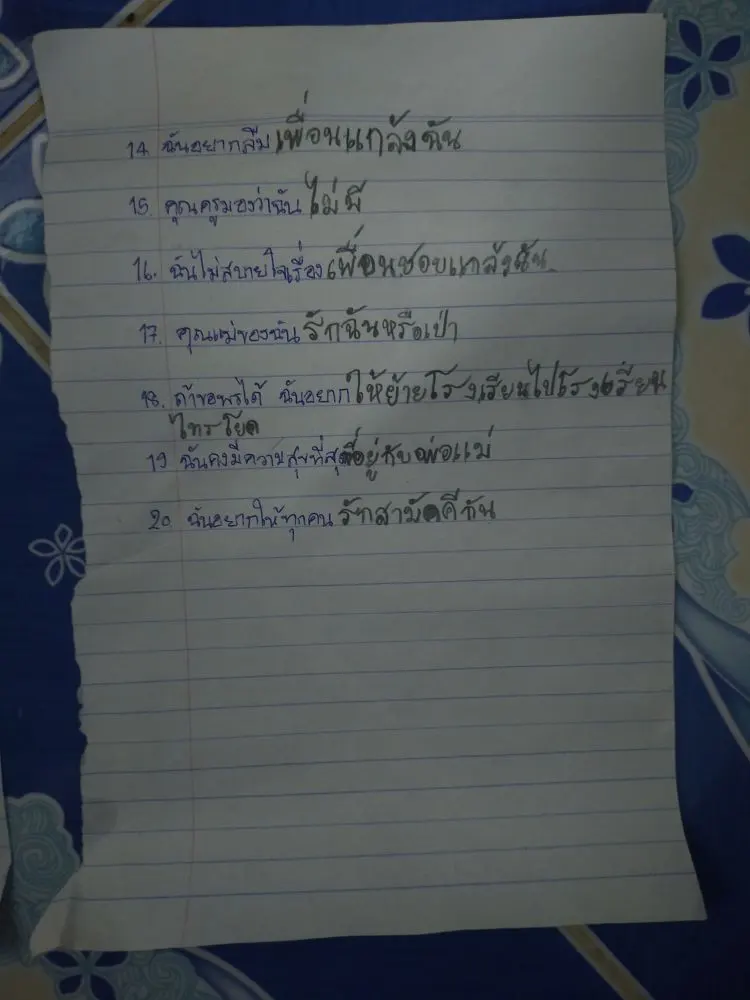 14. ฉันอยากลืมเพื่อนแกล้งฉัน
15. คุณครูมองว่าฉันไม่มี
16. ฉันไม่สบายใจเรื่องเพื่อนชอบแกล้งฉัน
17. คุณแม่ของฉันรักฉันหรือเป่า
18. ถ้าขอพรได้ ฉันอยากให้ย้ายโรงเรียนไปโรงเรียน
ไทรโยค
19 ฉันคงมีความสุขที่สุดอยู่กับพ่อแม่
20. ฉันอยากให้ทุกคนรักสามัคคีกัน